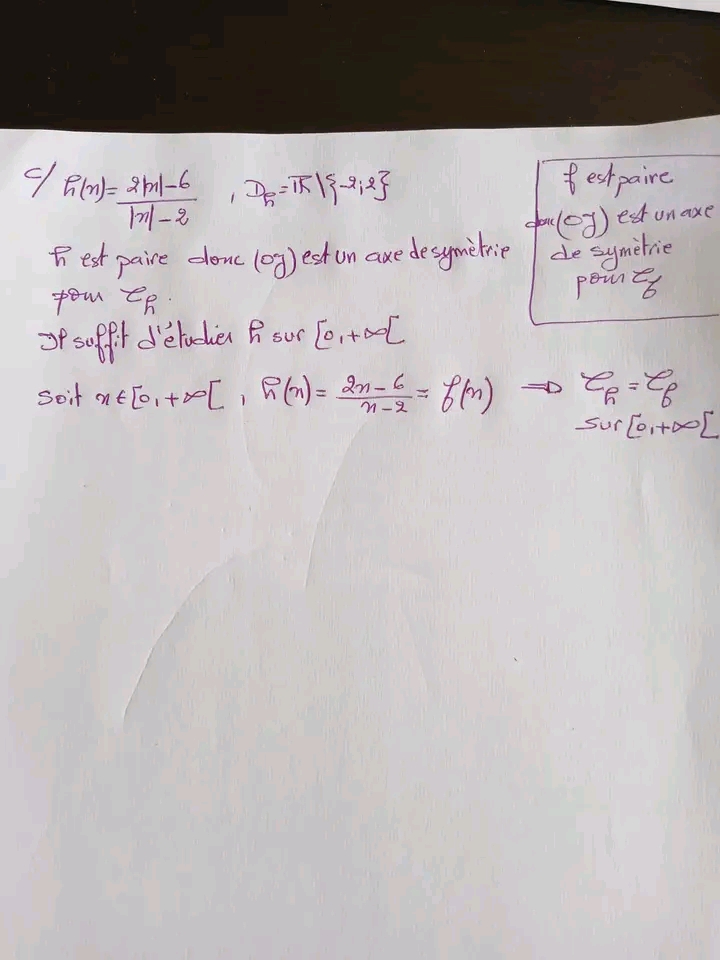 c/ h(x) = (2|x|-6)/(|x|-2) , D_h = ℝ\{-2;2}
h est paire donc (oy) est un axe de symètrie
pour 𝒞_h.
Il suffit d'étudier h sur [0,+∞[
soit x ∈ [0,+∞[ , h(x) = (2x-6)/(x-2) = f(x) ⟹ 𝒞_h = 𝒞_f
sur [0,+∞[
f est paire
donc (oy) est un axe
de symètrie
pour 𝒞_f